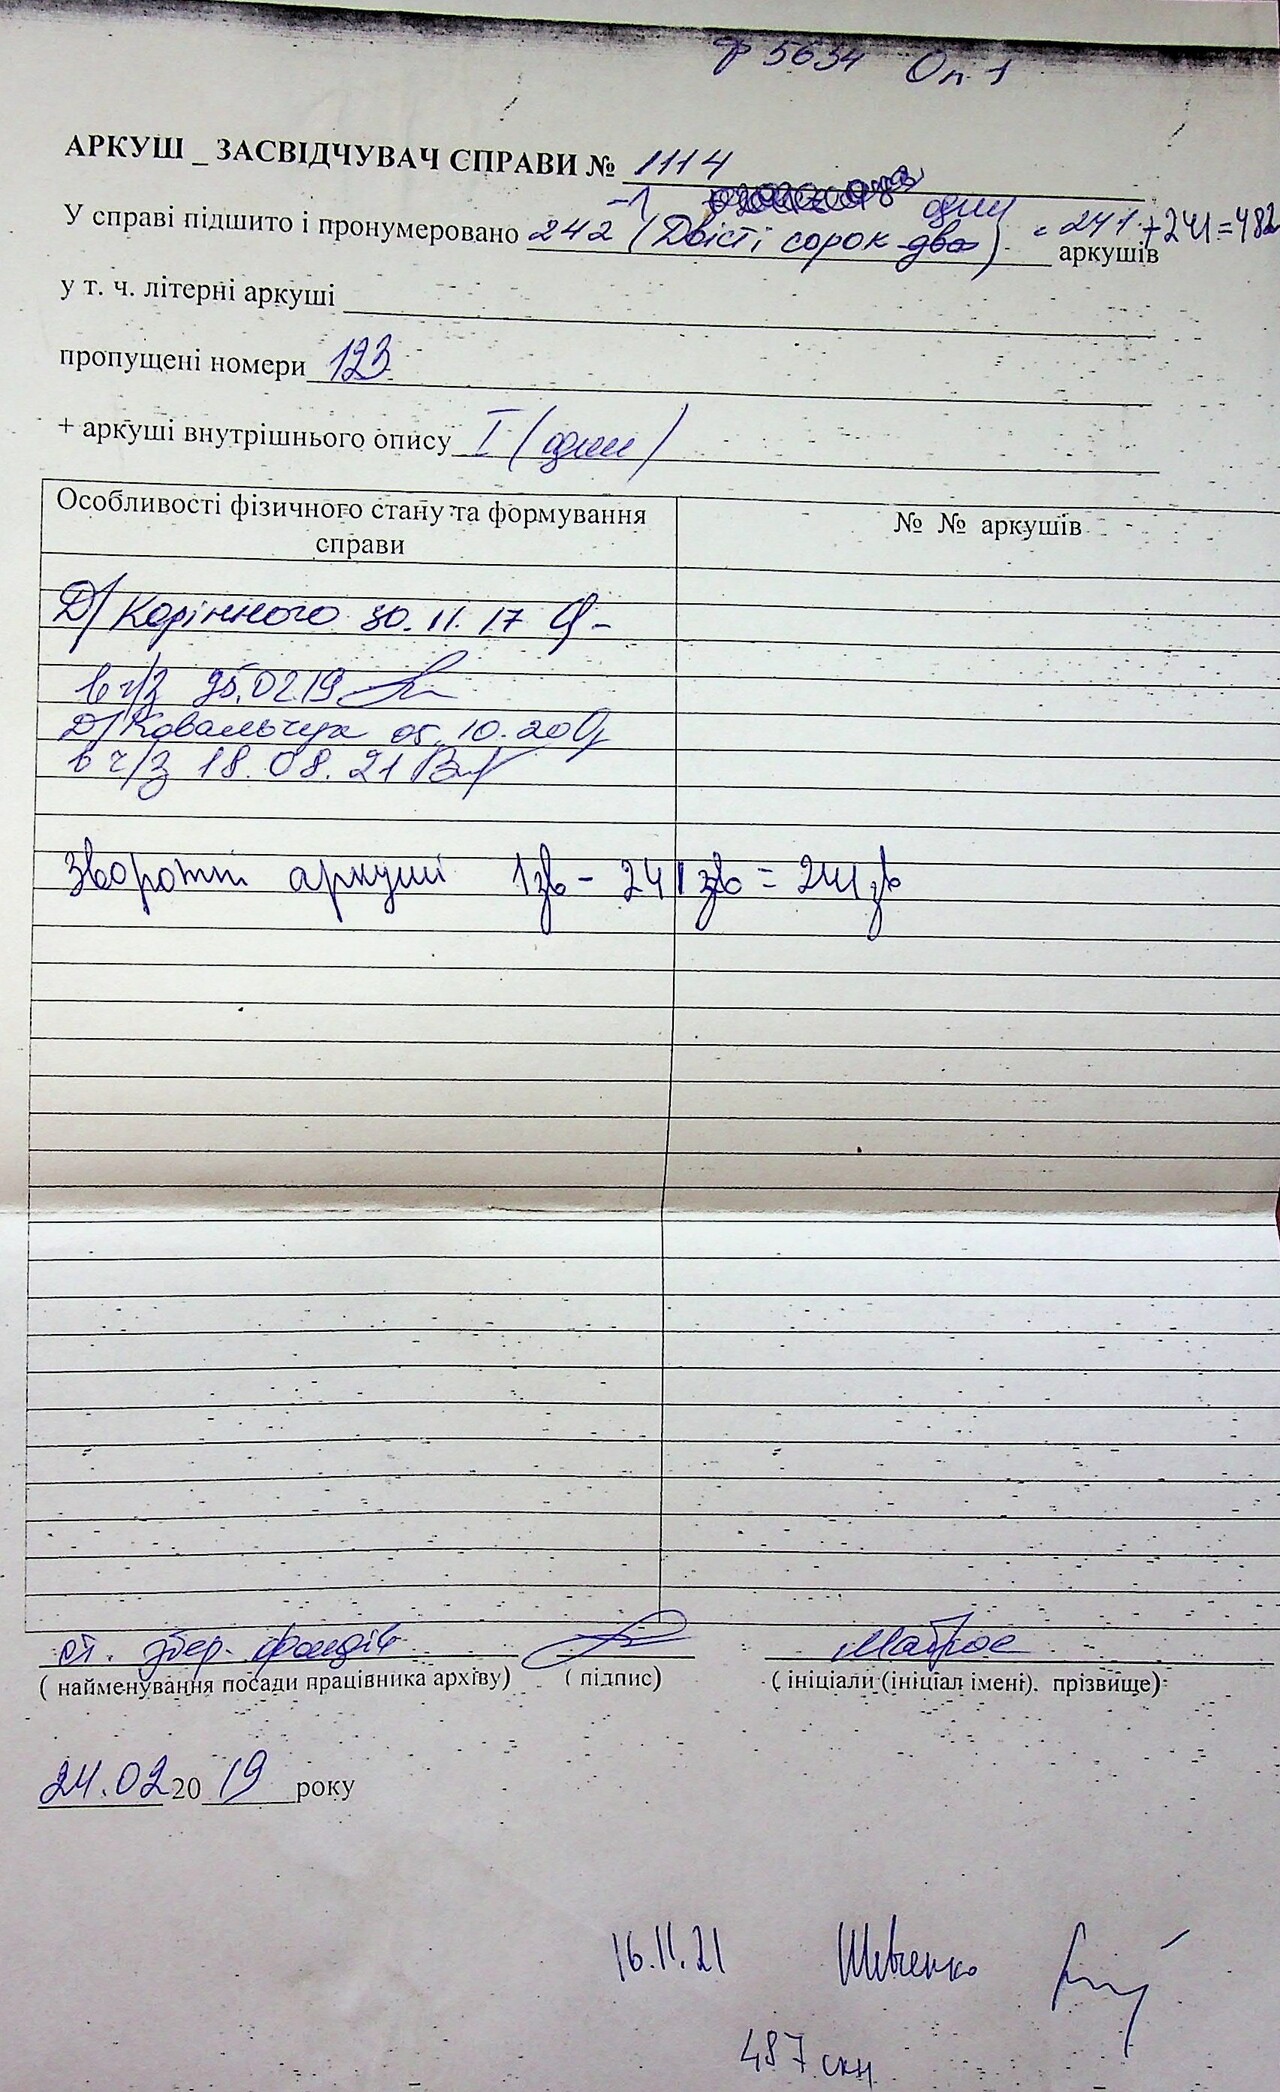 ф 5634 Оп 1
АРКУШ _ ЗАСВІДЧУВАЧ СПРАВИ № 1114
-1 один
У справі підшито і пронумеровано 242 (Двісті сорок два) = 241 + 241 = 482
аркушів
у т. ч. літерні аркуші
пропущені номери 123
+ аркуші внутрішнього опису I (один)
Особливості фізичного стану та формування справи
№ № аркушів
Д/ Корінного 30.11.17
в ч/з 25.02.19
Д/ Ковальчук 05.10.20
в ч/з 18.08.21
зворотні аркуші 1зв - 241 зв = 241 зв
ст. збер. фондів
Матрос
( найменування посади працівника архіву)
( підпис)
( ініціали (ініціал імені). прізвище)
24.02 20 19 року
16.11.21 Шевченко
487 скн